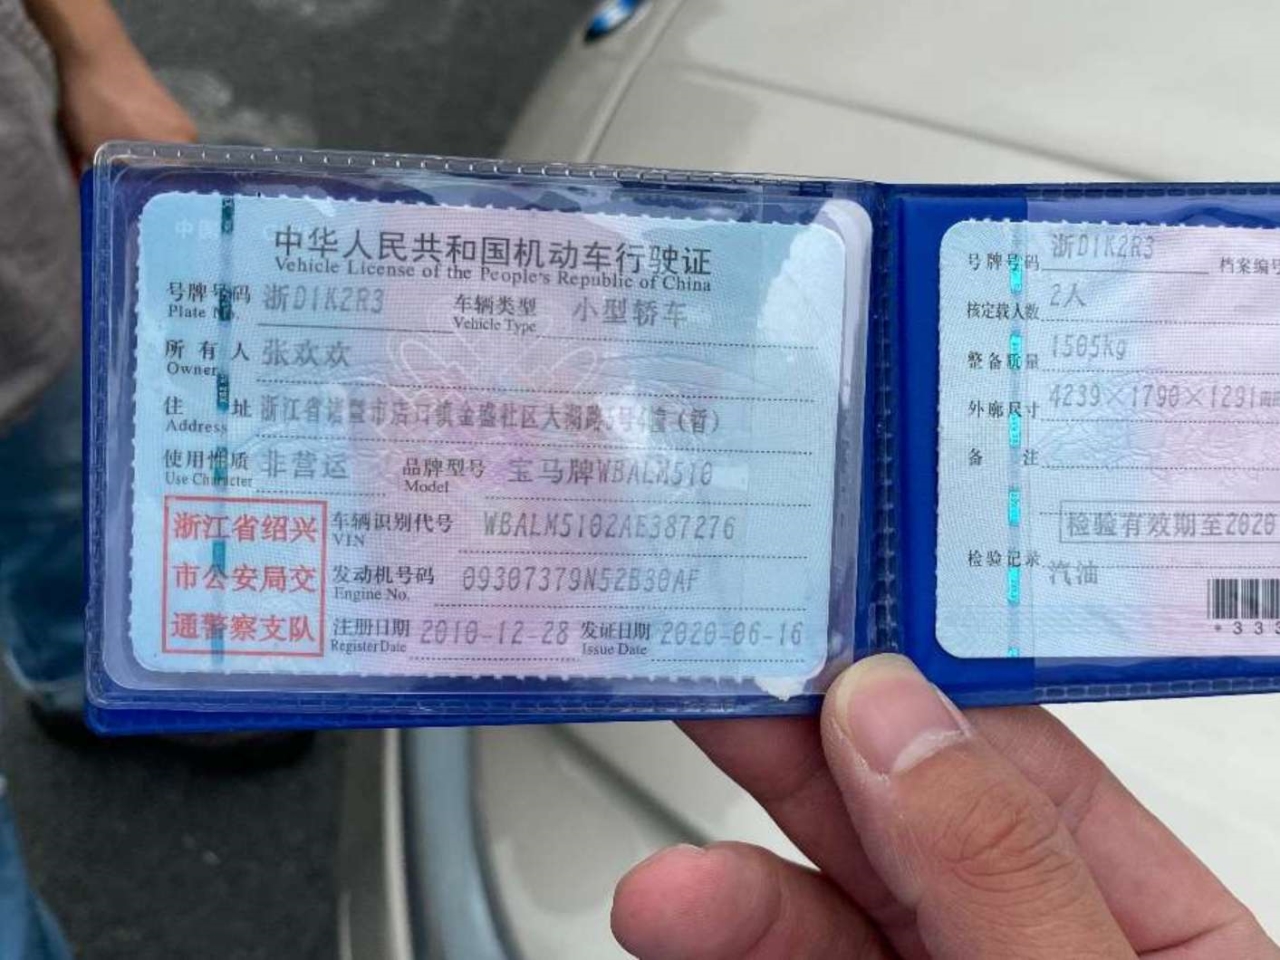 中华人民共和国机动车行驶证
Vehicle License of the People's Republic of China
号牌号码 浙D1K2R3 车辆类型 小型轿车
Plate No. Vehicle Type
所有人 张欢欢
Owner
住址 浙江省诸暨市店口镇金盛社区大湖路5号4幢(暂)
Address
使用性质 非营运 品牌型号 宝马牌WBALM510
Use Character Model
浙江省绍兴
市公安局交
通警察支队
车辆识别代号 WBALM5102AE387276
VIN
发动机号码 09307379N52B30AF
Engine No.
注册日期 2010-12-28 发证日期 2020-06-16
Register Date Issue Date
号牌号码 浙D1K2R3 档案编号
核定载人数 2人
整备质量 1505kg
外廓尺寸 4239×1790×1291
备注
检验有效期至2020
检验记录
汽油
*33